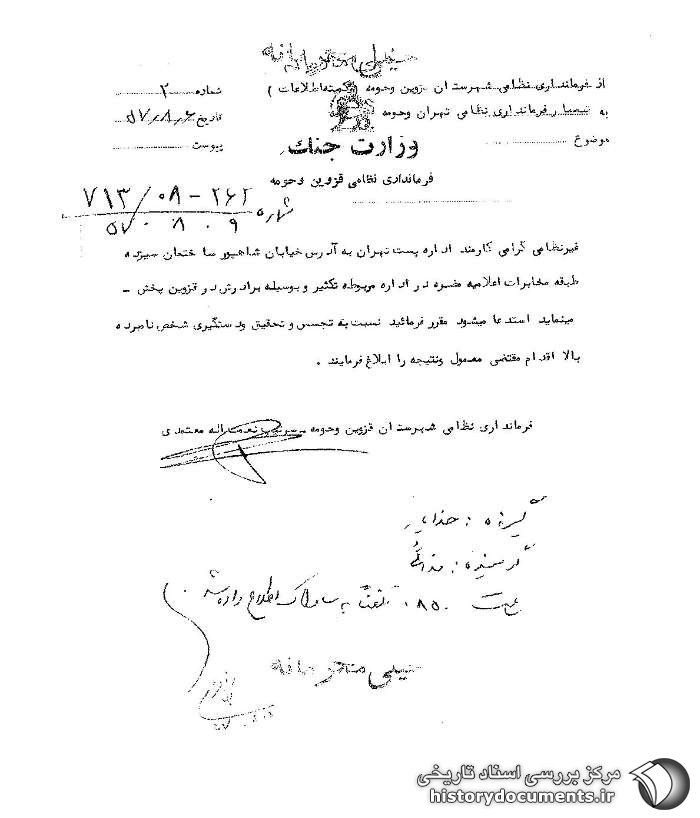 خیلی محرمانه
از فرمانداری نظامی شهرستان قزوین وحومه (کمیته اطلاعات)
شماره ۲
به تیمسار فرمانداری نظامی تهران وحومه
تاریخ ۵۷٫۸٫۶
موضوع
پیوست
وزارت جنگ
فرمانداری نظامی قزوین وحومه
شماره ۲۶۲ - ۰۸/۷۱۳
۵۷۰۸۰۹
غیرنظامی گرامی کارمند اداره پست تهران به آدرس خیابان شاهپور ساختمان سیزده
طبقه مخابرات اعلامیه مضره در اداره مربوطه تکثیر و بوسیله برادرش در قزوین پخش -
مینماید استدعا میشود مقرر فرمائید نسبت به تجسس و تحقیق ودستگیری شخص نامبرده
بالا اقدام مقتضی معمول ونتیجه را ابلاغ فرمایند .
فرمانداری نظامی شهرستان قزوین وحومه سرتیپ نعمت اله معتمدی
گیرنده : خدایار
گوینده :
ساعت ۰۸۵۰ تلفنی به ساواک اطلاع داده شد
خیلی محرمانه
مرکز بررسی اسناد تاریخی
historydocuments.ir